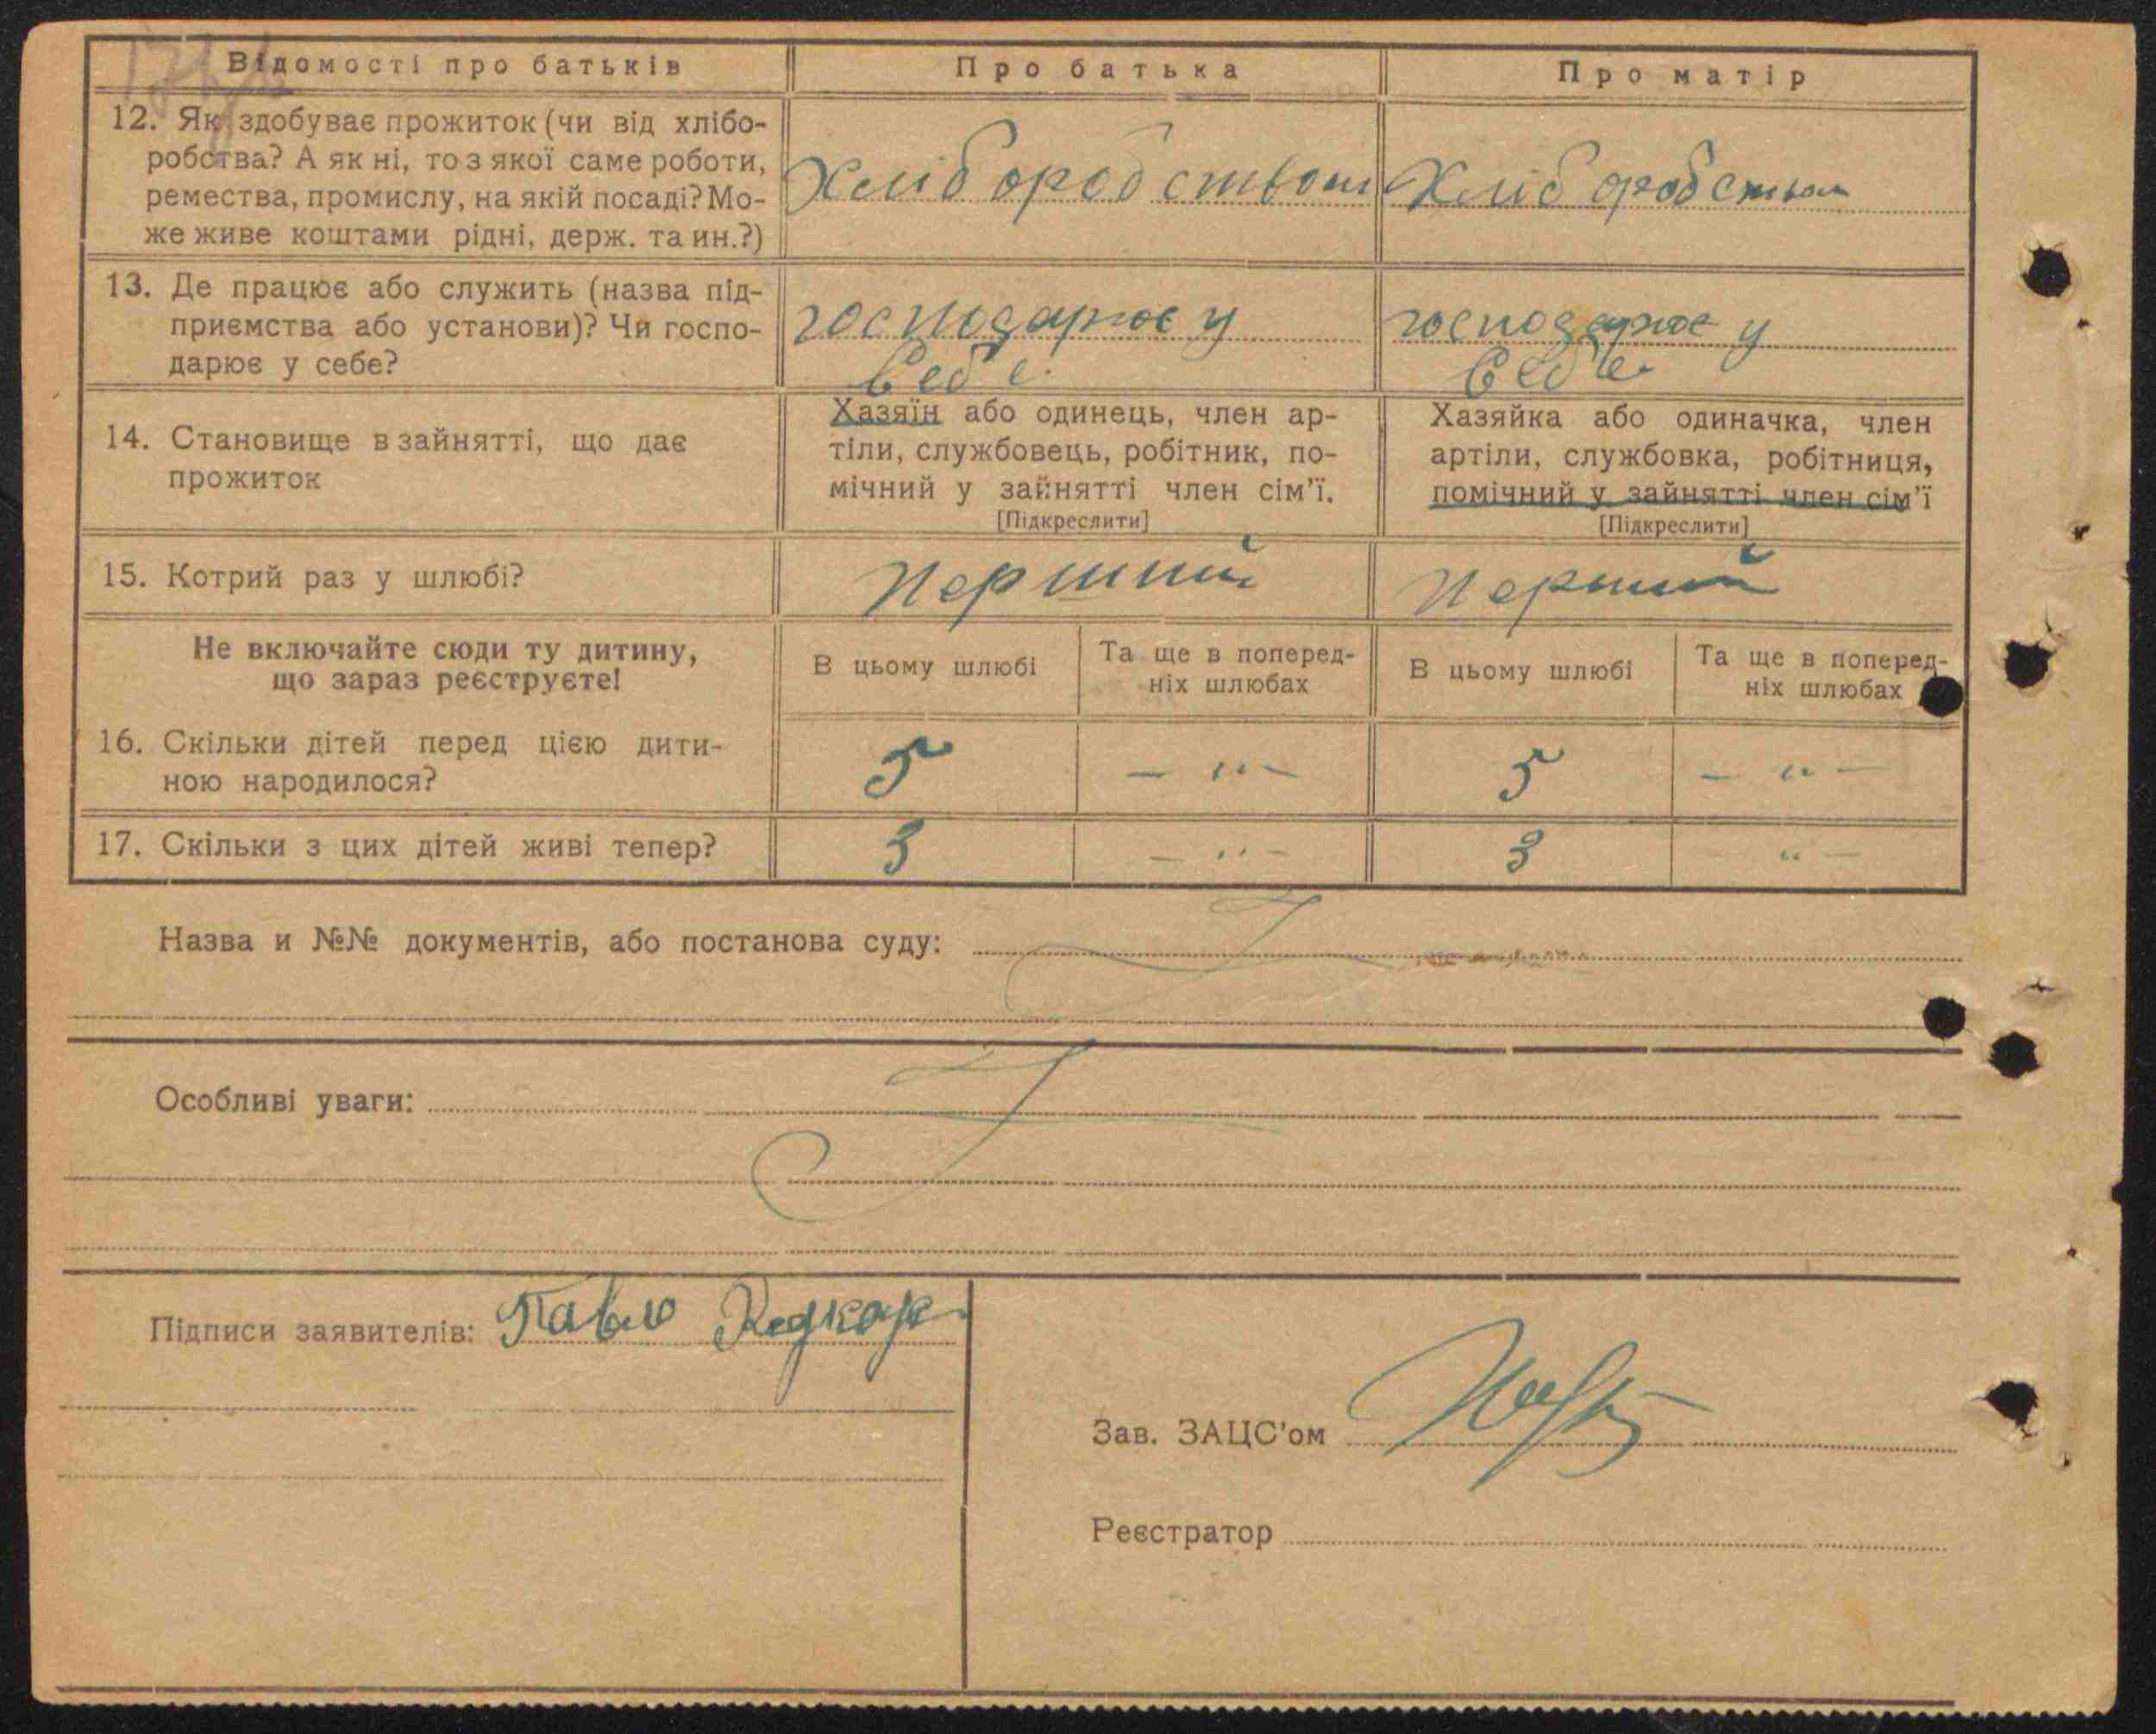 Відомості про батьків
Про батька
Про матір
12. Як здобуває прожиток (чи від хлібо-
робства? А як ні, то з якої саме роботи,
ремества, промислу, на якій посаді? Мо-
же живе коштами рідні, держ. та ин.?)
Хліборобством
Хліборобством
13. Де працює або служить (назва під-
приємства або установи)? Чи госпо-
дарює у себе?
господарює у
себе.
господарює у
себе.
14. Становище в зайнятті, що дає
прожиток
Хазяїн або одинець, член ар-
тіли, службовець, робітник, по-
мічний у зайнятті член сім'ї.
[Підкреслити]
Хазяйка або одиначка, член
артіли, службовка, робітниця,
помічний у зайнятті член сім'ї
[Підкреслити]
15. Котрий раз у шлюбі?
Перший
Перший
Не включайте сюди ту дитину,
що зараз реєструєте!
В цьому шлюбі
Та ще в поперед-
ніх шлюбах
В цьому шлюбі
Та ще в поперед-
ніх шлюбах
16. Скільки дітей перед цією дити-
ною народилося?
5
— " —
5
— " —
17. Скільки з цих дітей живі тепер?
3
— " —
3
" —
Назва и №№ документів, або постанова суду:
Особливі уваги:
Підписи заявителів: Павло
Зав. ЗАЦС'ом
Реєстратор